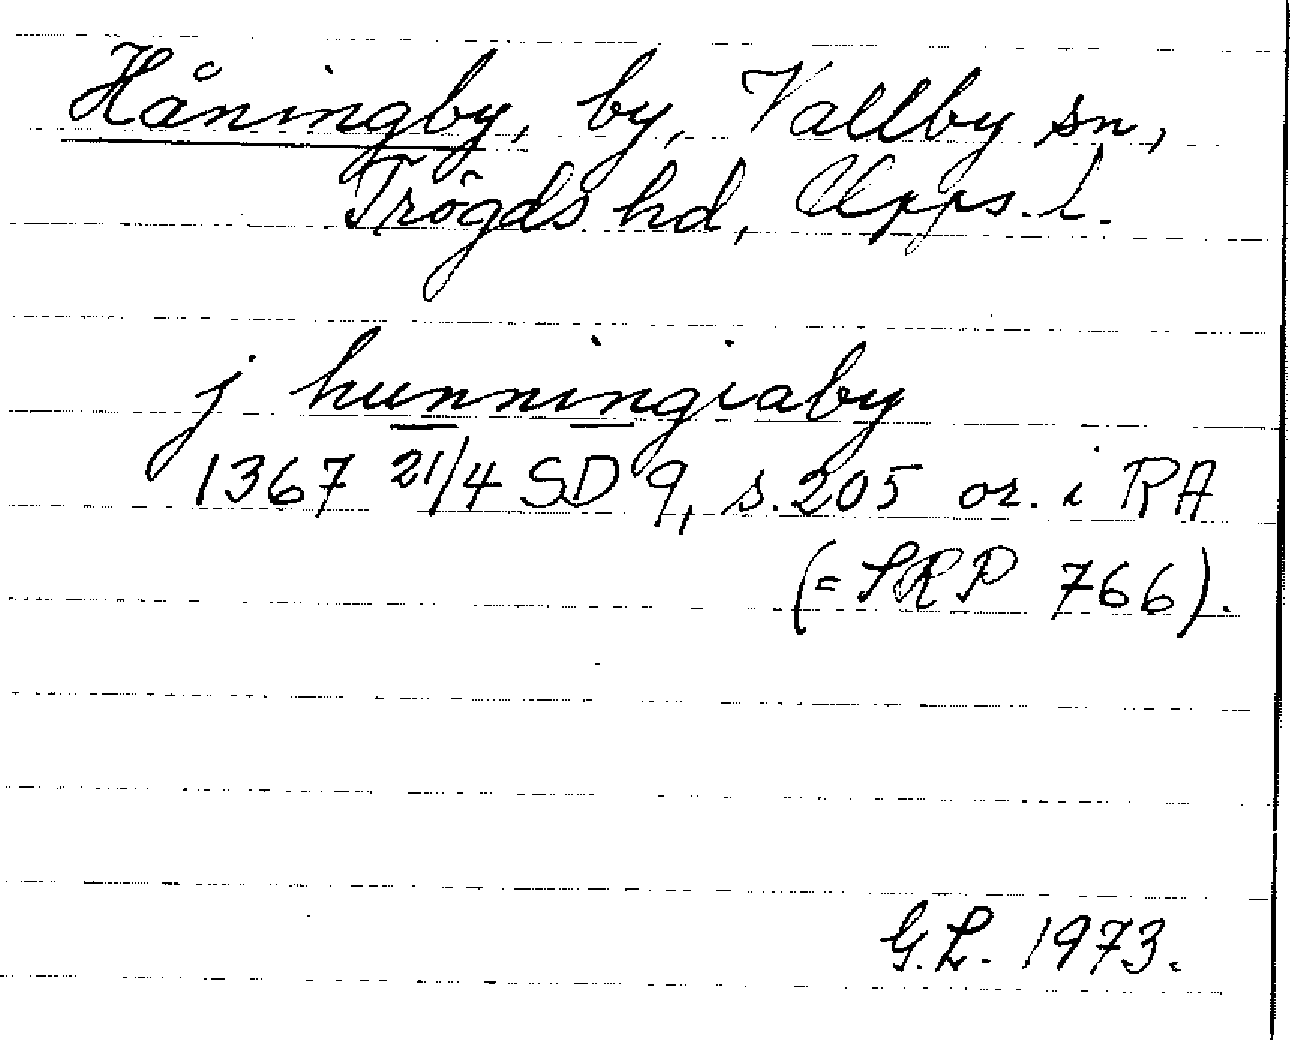 Håningby, by, Vallby sn,
Trögds hd, Upps. l.
j hunningiaby
1367 21/4 SD 9, s. 205 or. i RA
(= SRP 766).
G.L. 1973.